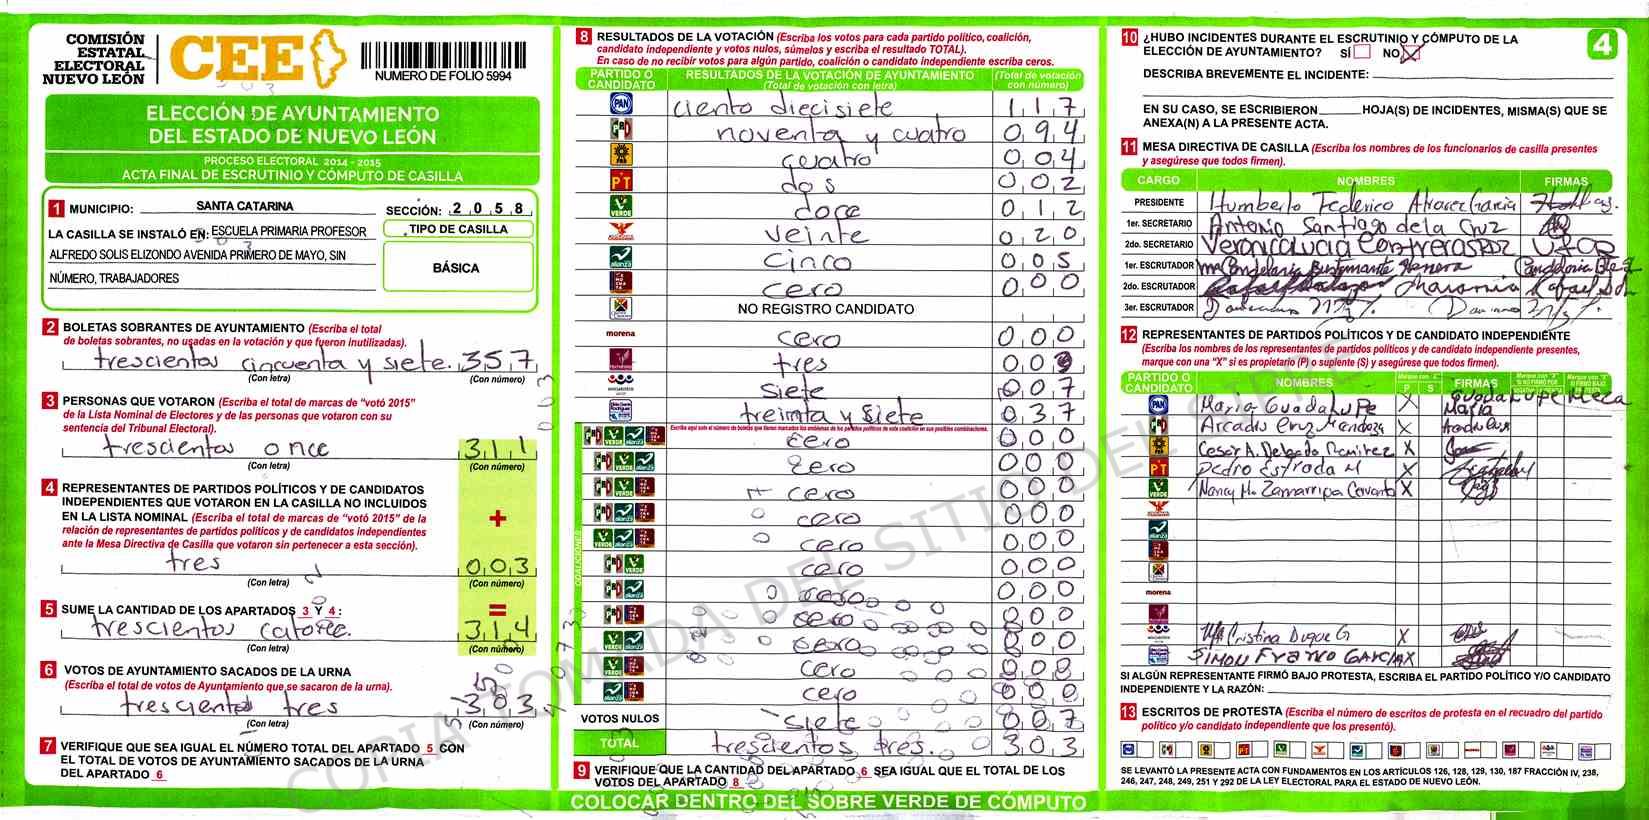 COMISIÓN
ESTATAL
ELECTORAL
NUEVO LEÓN
CEE
NUMERO DE FOLIO 5994
ELECCIÓN DE AYUNTAMIENTO
DEL ESTADO DE NUEVO LEÓN
PROCESO ELECTORAL 2014 - 2015
ACTA FINAL DE ESCRUTINIO Y CÓMPUTO DE CASILLA
1 MUNICIPIO: SANTA CATARINA
SECCIÓN: 2 0 5 8
LA CASILLA SE INSTALÓ EN: ESCUELA PRIMARIA PROFESOR
ALFREDO SOLIS ELIZONDO AVENIDA PRIMERO DE MAYO, SIN
NÚMERO, TRABAJADORES
TIPO DE CASILLA
BÁSICA
2 BOLETAS SOBRANTES DE AYUNTAMIENTO (Escriba el total
de boletas sobrantes, no usadas en la votación y que fueron inutilizadas).
trescientos cincuenta y siete 357
(Con letra) (Con número)
3 PERSONAS QUE VOTARON (Escriba el total de marcas de "votó 2015"
de la Lista Nominal de Electores y de las personas que votaron con su
sentencia del Tribunal Electoral).
trescientos once 311
(Con letra) (Con número)
4 REPRESENTANTES DE PARTIDOS POLÍTICOS Y DE CANDIDATOS
INDEPENDIENTES QUE VOTARON EN LA CASILLA NO INCLUIDOS
EN LA LISTA NOMINAL (Escriba el total de marcas de "votó 2015" de la
relación de representantes de partidos politicos y de candidatos independientes
ante la Mesa Directiva de Casilla que votaron sin pertenecer a esta sección).
+
tres 003
(Con letra) (Con número)
5 SUME LA CANTIDAD DE LOS APARTADOS 3 Y 4 :
=
trescientos catorce. 314
(Con letra) (Con número)
6 VOTOS DE AYUNTAMIENTO SACADOS DE LA URNA
(Escriba el total de votos de Ayuntamiento que se sacaron de la urna).
trescientos tres 303
(Con letra) (Con número)
7 VERIFIQUE QUE SEA IGUAL EL NÚMERO TOTAL DEL APARTADO 5 CON
EL TOTAL DE VOTOS DE AYUNTAMIENTO SACADOS DE LA URNA
DEL APARTADO 6
8 RESULTADOS DE LA VOTACIÓN (Escriba los votos para cada partido político, coalición,
candidato independiente y votos nulos, súmelos y escriba el resultado TOTAL).
En caso de no recibir votos para algún partido, coalición o candidato independiente escriba ceros.
PARTIDO O CANDIDATO
RESULTADOS DE LA VOTACIÓN DE AYUNTAMIENTO
(Total de votación con letra)
(Total de votación con número)
PAN ciento diecisiete 117
noventa y cuatro 094
cuatro 004
PT dos 002
VERDE doce 012
veinte 020
alianza cinco 005
cero 000
NO REGISTRO CANDIDATO
morena cero 000
tres 003
siete 007
treinta y siete 037
cero 000
cero 000
cero 000
cero 000
cero 000
cero 000
cero 000
cero 000
cero 000
cero 000
cero 000
COALICIONES
VOTOS NULOS siete 007
TOTAL trescientos tres. 303
9 VERIFIQUE QUE LA CANTIDAD DEL APARTADO 6 SEA IGUAL QUE EL TOTAL DE LOS
VOTOS DEL APARTADO 8
COLOCAR DENTRO DEL SOBRE VERDE DE CÓMPUTO
10 ¿HUBO INCIDENTES DURANTE EL ESCRUTINIO Y CÓMPUTO DE LA
ELECCIÓN DE AYUNTAMIENTO? SÍ NO X
4
DESCRIBA BREVEMENTE EL INCIDENTE:
EN SU CASO, SE ESCRIBIERON HOJA(S) DE INCIDENTES, MISMA(S) QUE SE
ANEXA(N) A LA PRESENTE ACTA.
11 MESA DIRECTIVA DE CASILLA (Escriba los nombres de los funcionarios de casilla presentes
y asegúrese que todos firmen).
CARGO NOMBRES FIRMAS
PRESIDENTE Humberto Federico Alvarez Garcia
1er. SECRETARIO Antonio Santiago de la Cruz
2do. SECRETARIO Veronica Lucia Contreras Rdz
1er. ESCRUTADOR Ma Candelaria Bustamante Herrera
2do. ESCRUTADOR
3er. ESCRUTADOR
12 REPRESENTANTES DE PARTIDOS POLÍTICOS Y DE CANDIDATO INDEPENDIENTE
(Escriba los nombres de los representantes de partidos políticos y de candidato independiente presentes,
marque con una "X" si es propietario (P) o suplente (S) y asegúrese que todos firmen).
PARTIDO O CANDIDATO NOMBRES P S FIRMAS
PAN Maria Guadalupe X Guadalupe Meza Maria
Arcadio Cruz Mendoza X
Cesar A. Delgado Ramirez X
PT Pedro Estrada M X
VERDE Nancy M. Zamarripa Cervantes X
alianza
morena
Ma Cristina Duque G X
SIMON Franco GARCIA X
SI ALGÚN REPRESENTANTE FIRMÓ BAJO PROTESTA, ESCRIBA EL PARTIDO POLÍTICO Y/O CANDIDATO
INDEPENDIENTE Y LA RAZÓN:
13 ESCRITOS DE PROTESTA (Escriba el número de escritos de protesta en el recuadro del partido
político y/o candidato independiente que los presentó).
SE LEVANTÓ LA PRESENTE ACTA CON FUNDAMENTOS EN LOS ARTÍCULOS 126, 128, 129, 130, 187 FRACCIÓN IV, 238,
246, 247, 248, 249, 251 Y 292 DE LA LEY ELECTORAL PARA EL ESTADO DE NUEVO LEÓN.
COPIA TOMADA DEL SITIO DEL SIPRE